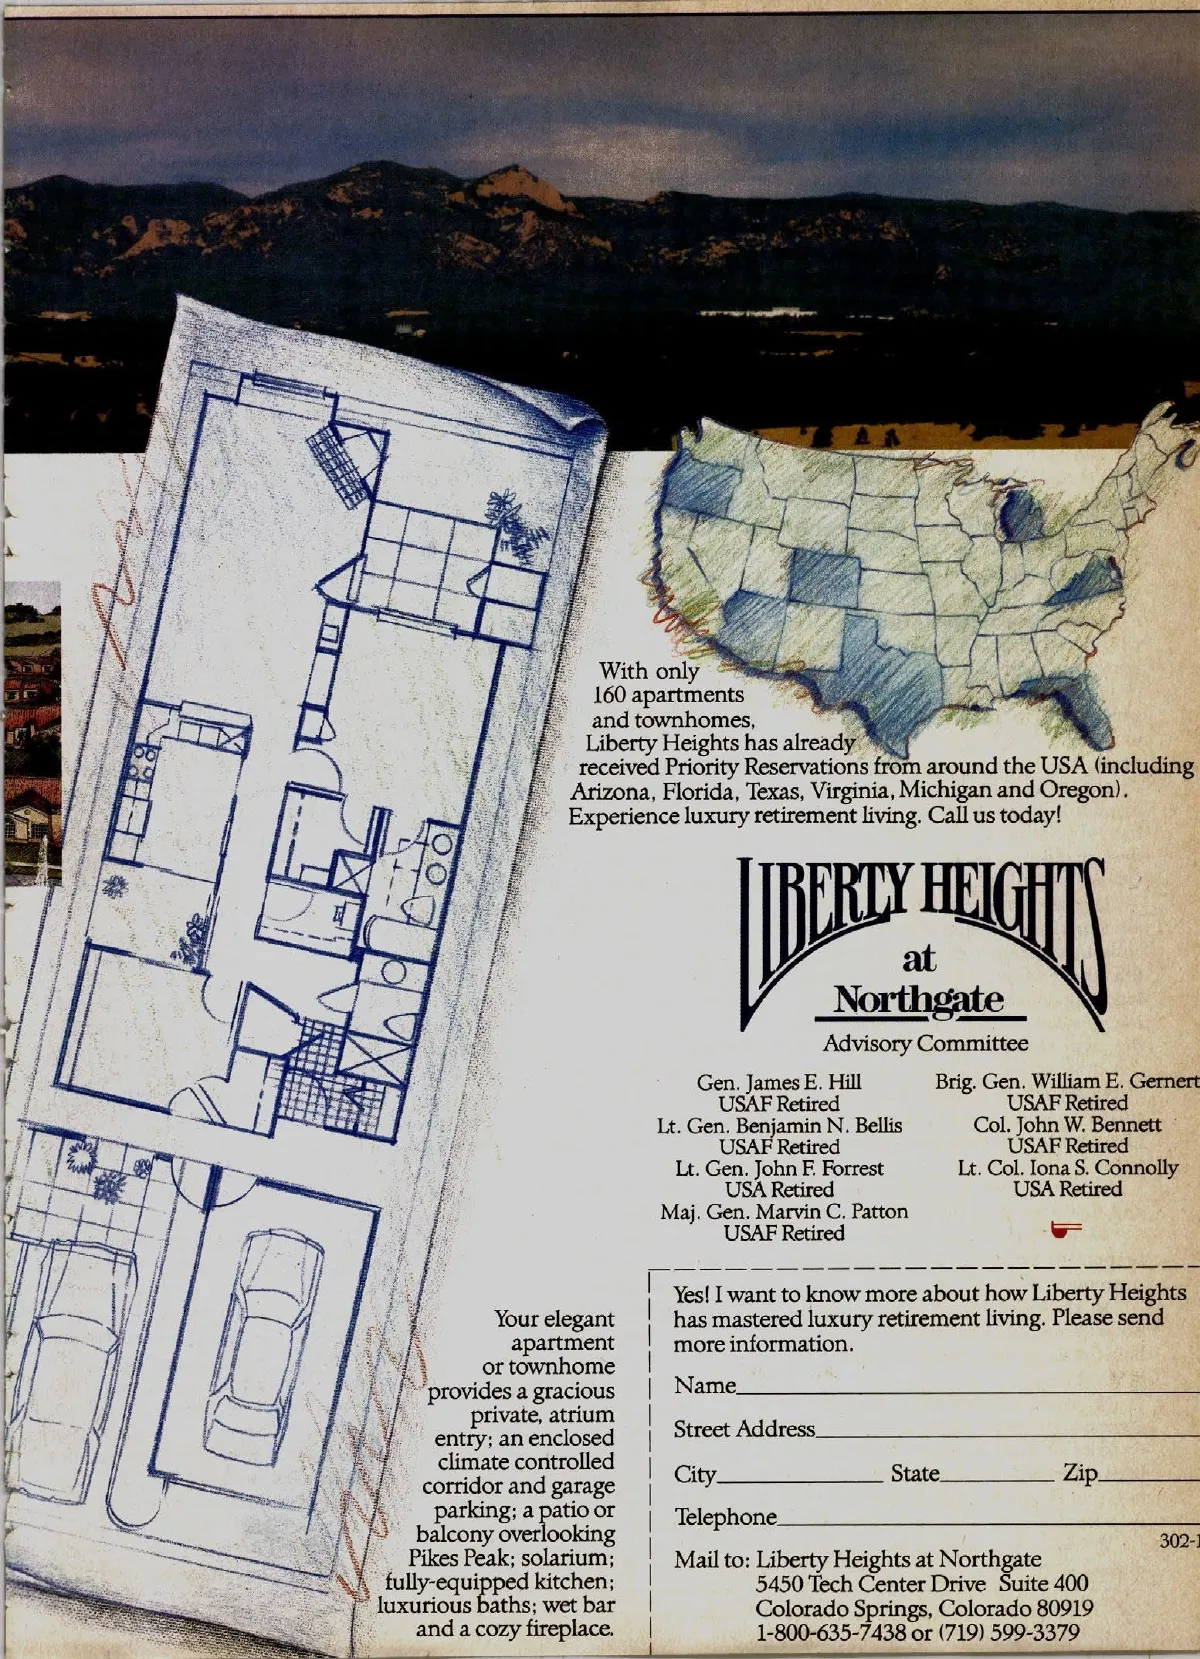 With only
160 apartments
and townhomes,
Liberty Heights has already
received Priority Reservations from around the USA (including
Arizona, Florida, Texas, Virginia, Michigan and Oregon).
Experience luxury retirement living. Call us today!
LIBERTY HEIGHTS
at
Northgate
Advisory Committee
Gen. James E. Hill
USAF Retired
Lt. Gen. Benjamin N. Bellis
USAF Retired
Lt. Gen. John F. Forrest
USA Retired
Maj. Gen. Marvin C. Patton
USAF Retired
Brig. Gen. William E. Gernert
USAF Retired
Col. John W. Bennett
USAF Retired
Lt. Col. Iona S. Connolly
USA Retired
Your elegant
apartment
or townhome
provides a gracious
private, atrium
entry; an enclosed
climate controlled
corridor and garage
parking; a patio or
balcony overlooking
Pikes Peak; solarium;
fully-equipped kitchen;
luxurious baths; wet bar
and a cozy fireplace.
Yes! I want to know more about how Liberty Heights
has mastered luxury retirement living. Please send
more information.
Name
Street Address
City State Zip
Telephone
302-1
Mail to: Liberty Heights at Northgate
5450 Tech Center Drive Suite 400
Colorado Springs, Colorado 80919
1-800-635-7438 or (719) 599-3379